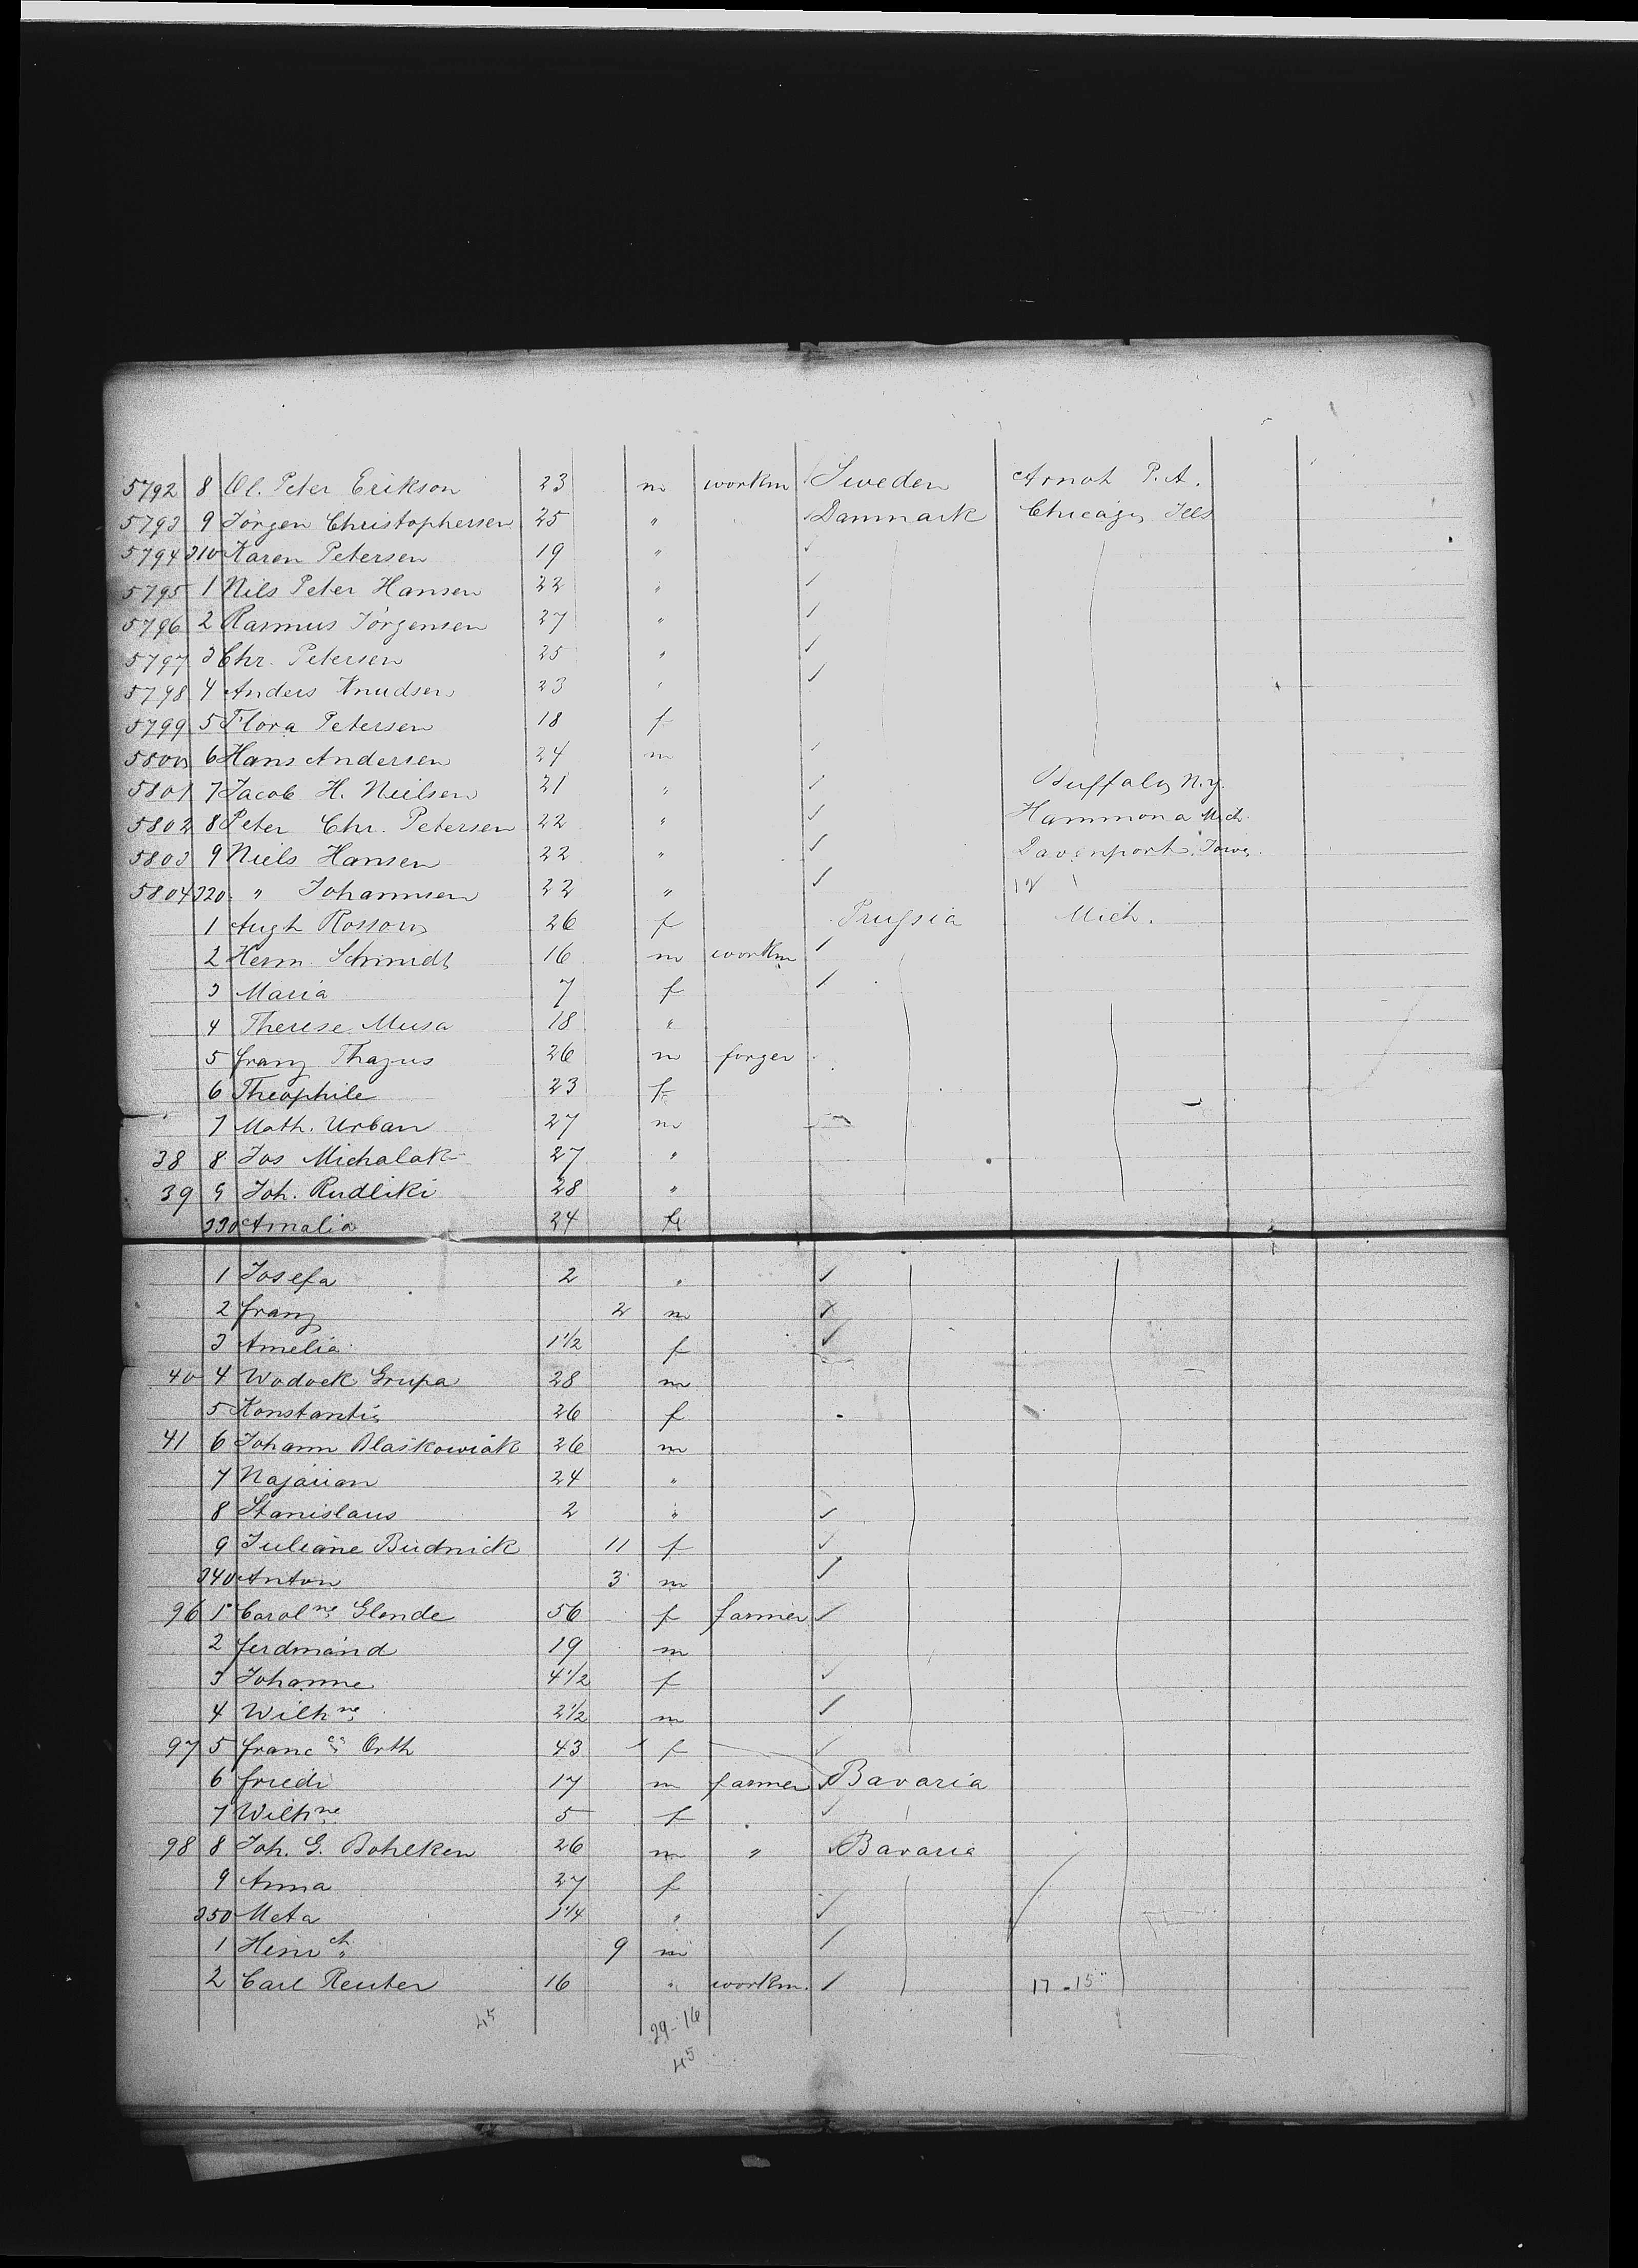 5792 8 Ol. Peter Erikson 23 m workm Sweden Arnot P.A.
5793 9 Jörgen Christophersen 25 " Danmark Chicago Ills
5794 310 Karen Petersen 19 "
5795 1 Nils Peter Hansen 22 "
5796 2 Rasmus Jörgensen 27 "
5797 3 Chr. Petersen 25 "
5798 4 Anders Knudsen 23 "
5799 5 Flora Petersen 18 f
5800 6 Hans Andersen 24 m
5801 7 Jacob H. Nielsen 21 " Buffalo N.Y.
5802 8 Peter Chr. Petersen 22 " Hammona Mich.
5803 9 Niels Hansen 22 " Davenport. Iowa
5804 320 " Johannsen 22 "
1 Augh Rossow 26 f Prussia Mich.
2 Herm. Schmidt 16 m workm
3 Maria 7 f
4 Therese Musa 18 "
5 franz Thazus 26 m forger
6 Theophile 23 f
7 Math. Urban 27 m
38 8 Jos Michalak 27 "
39 9 Joh. Rudliki 28 "
330 Amalia 24 f
1 Josefa 2 "
2 franz 2 m
3 Amelia 1 1/2 f
40 4 Wodock Grupa 28 m
5 Konstantia 26 f
41 6 Johann Blaskowiak 26 m
7 Najarian 24 "
8 Stanislaus 2 "
9 Juliane Budnick 11 f
340 Anton 3 m
96 1 Carolne Glende 56 f farmer
2 ferdinand 19 m
3 Johanne 4 1/2 f
4 Wilhne 2 1/2 m
97 5 franc Orth 43 f
6 friedr 17 m farmer Bavaria
7 Wilhne 5 f
98 8 Joh. G. Bohlken 26 m " Bavaria
9 Anna 27 f
350 Meta 1 1/4 "
1 Heinrch 9 m
2 Carl Reuter 16 " workm. 17-15
45 29-16
45